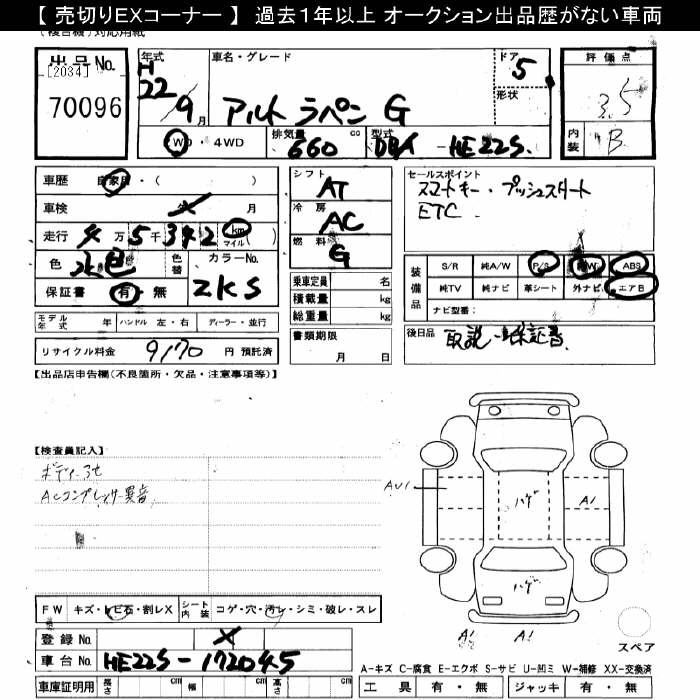 【 売切りEXコーナー 】 過去1年以上 オークション出品歴がない車両
(複合機)対応用紙
出品No. [2034] 70096
年式 H22/9月
車名・グレード アルト ラパン G
ドア 5
形状
評価点 3.5
内装 B
2WD・4WD
排気量 660 cc
型式 DBA-HE22S.
車歴 自家用・( )
車検 月
走行 4万5千342 km マイル( )
色 水色
色替
カラーNo. ZKS
保証書 有・無
モデル年式 年 ハンドル 左・右 ディーラー・並行
リサイクル料金 9170 円 預託済
シフト AT
冷房 AC
燃料 G
乗車定員 名
積載量 kg
総重量 kg
書類期限 月 日
セールスポイント
スマートキー・プッシュスタート
ETC.
装備品
S/R 純A/W P/S P/W ABS
純TV 純ナビ 革シート 外ナビ エアB
ナビ型番:
後日品 取説・保証書
【出品店申告欄(不良箇所・欠品・注意事項等)】
【検査員記入】
ボディーヨゴ
ACコンプレッサー異音
AU1
ハゲ
A1
ハゲ
A1 A1
スペア
FW キズ・トビ石・割レX シート内装 コゲ・穴・汚レ・シミ・破レ・スレ
登録No. X
車台No. HE22S-172045
車庫証明用 長さ cm 幅 cm 高さ cm
A-キズ C-腐食 E-エクボ S-サビ U-凹ミ W-補修 XX-交換済
工具 有・無 ジャッキ 有・無